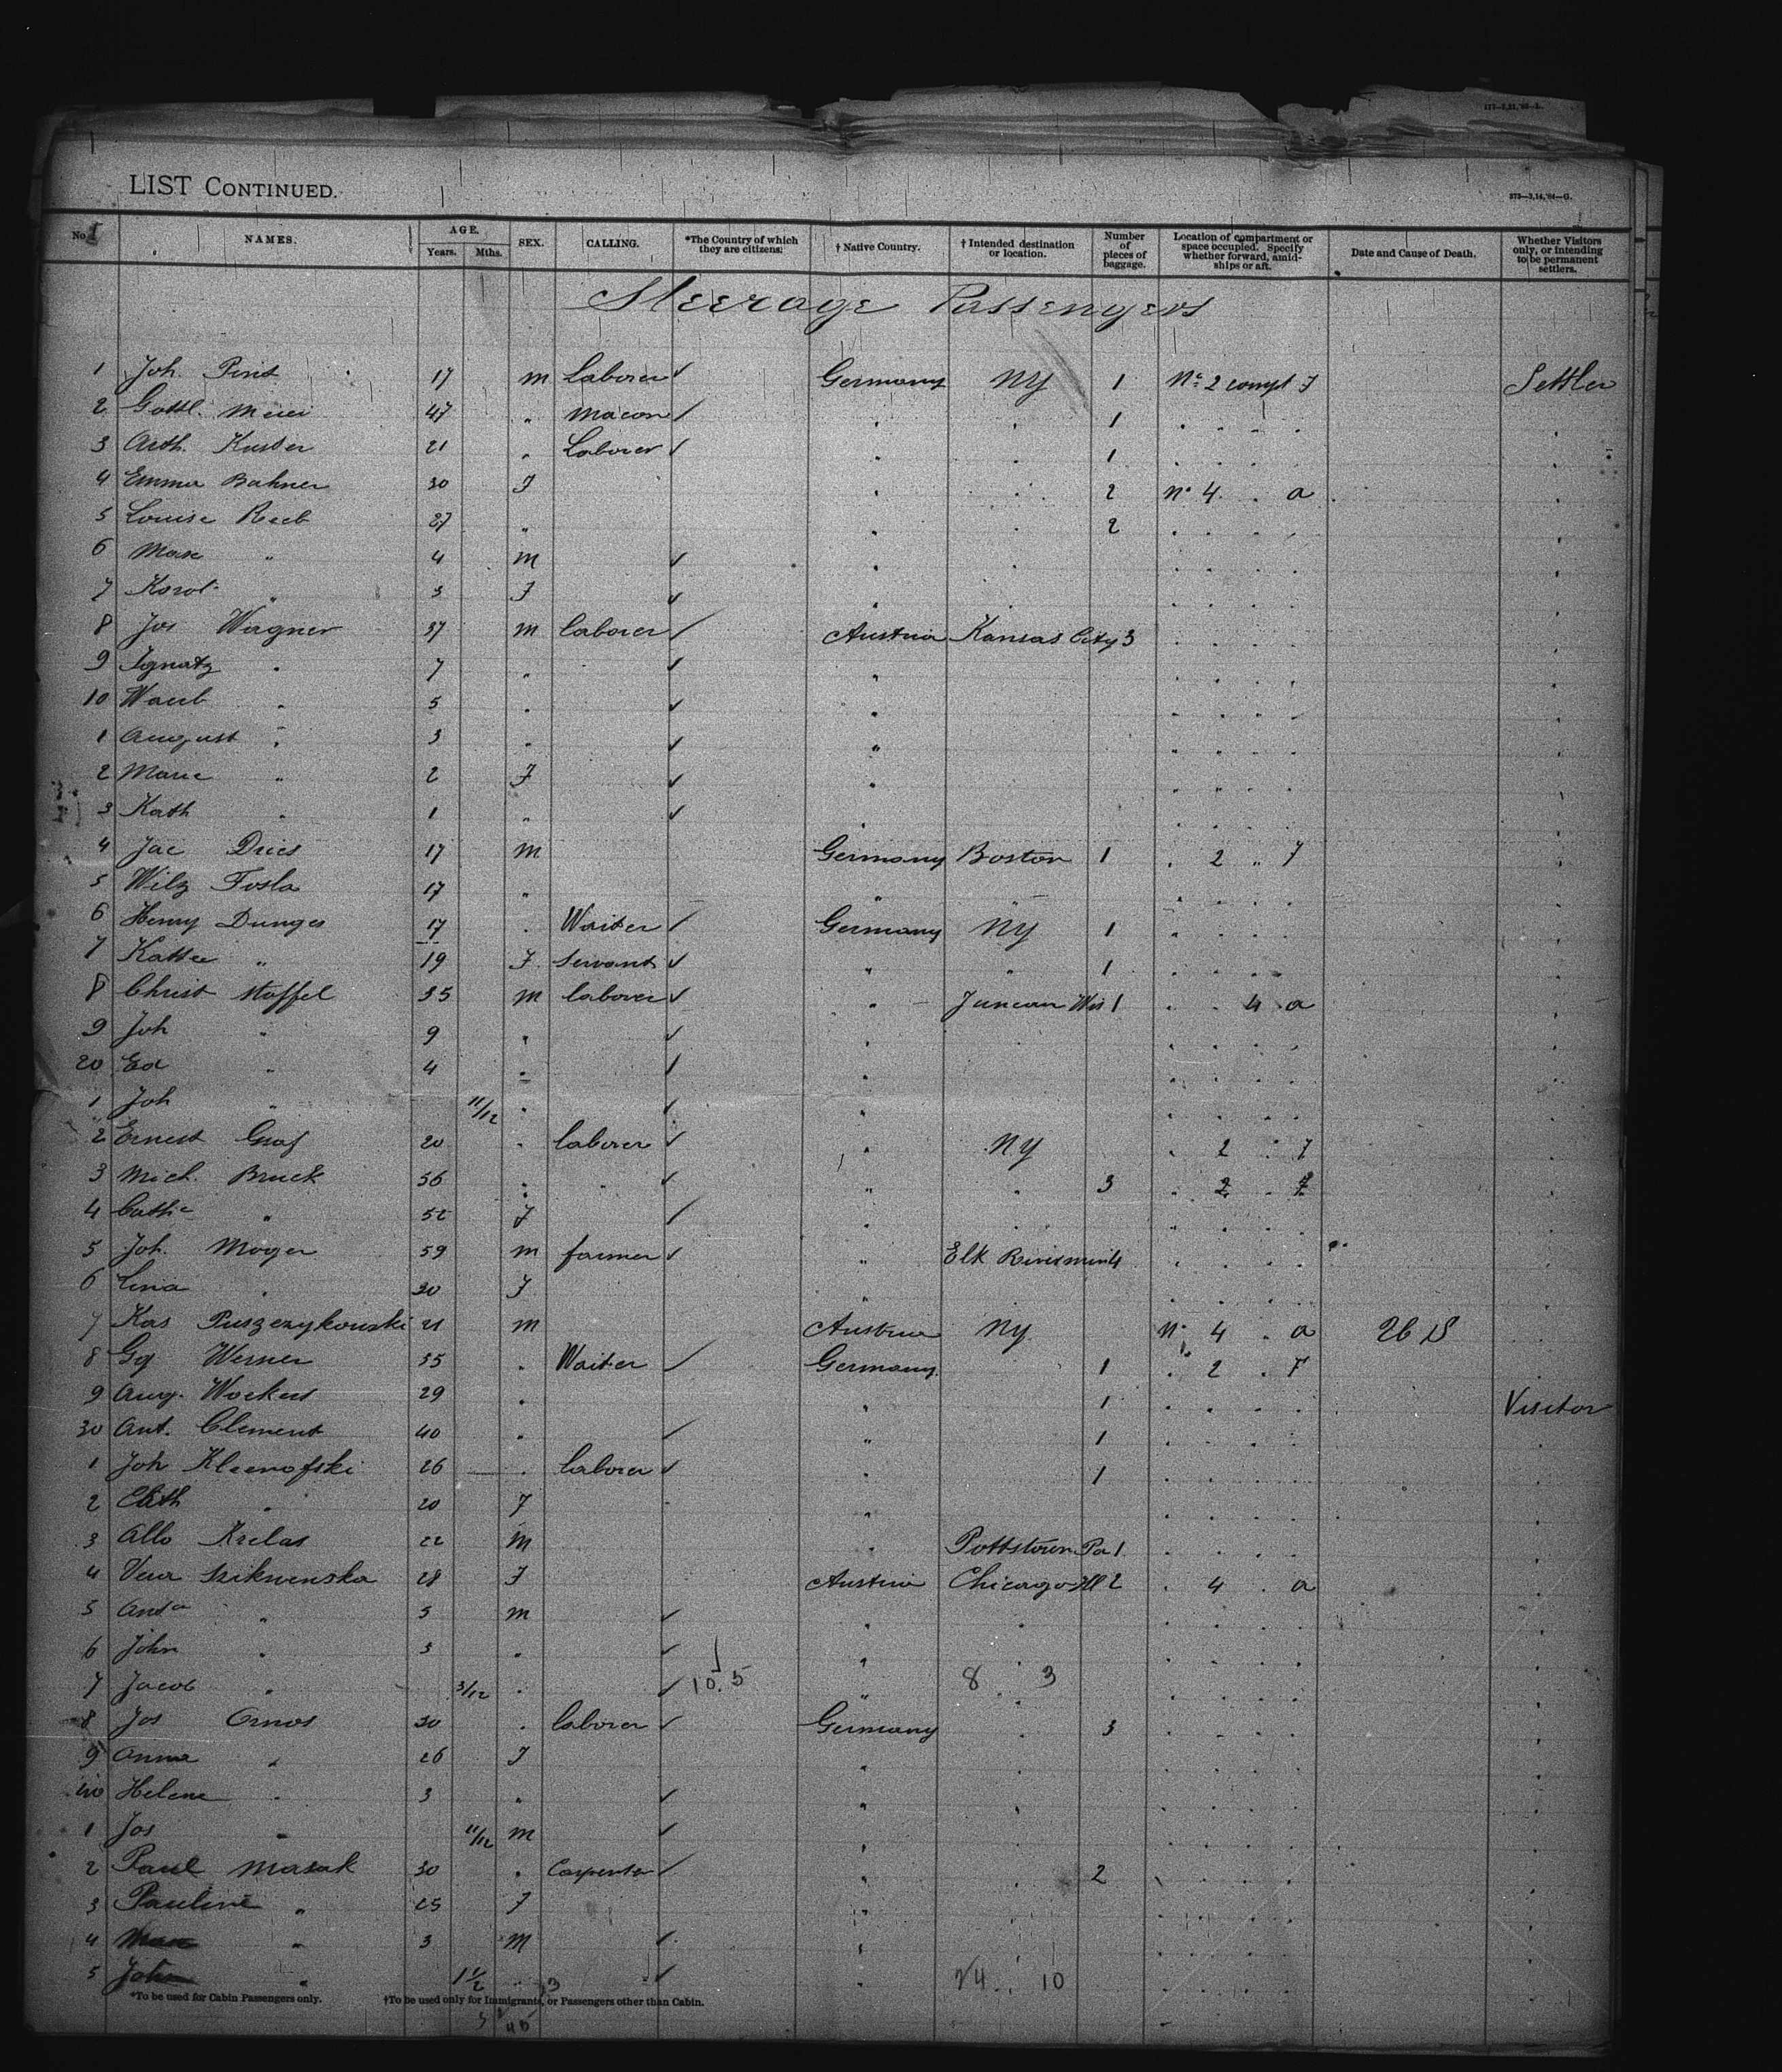 LIST CONTINUED.
No. NAMES. AGE. Years. Mths. SEX. CALLING. *The Country of which they are citizens. † Native Country. † Intended destination or location. Number of pieces of baggage. Location of compartment or space occupied. Specify whether forward, amidships or aft. Date and Cause of Death. Whether Visitors only, or intending to be permanent settlers.
Steerage Passengers
1 Joh. 17 m Laborer ✓ Germany NY 1 No 2 compt F Settler
2 Gottl. Meier 47 " Macon ✓ " " 1 " " "
3 Arth. Kuster 21 " Laborer ✓ " " 1 " " "
4 Emma Bahner 30 F " " 2 No 4 " a "
5 Louise Reeb 37 " " " 2 " " "
6 Max " 4 m ✓ " " " " "
7 Karol " 3 F ✓ " " " " "
8 Jos Wagner 37 m laborer ✓ Austria Kansas City 3 " " "
9 Ignatz " 7 " ✓ " " " "
10 " 5 " ✓ " " " "
1 August " 3 " ✓ " " " "
2 Marie " 2 F ✓ " " " "
3 Kath " 1 " ✓ " " " "
4 Jac Dries 17 m Germany Boston 1 " 2 " F "
5 17 " " " " " "
6 Henry Dunges 17 " Waiter ✓ Germany NY 1 " " "
7 " 19 F Servant ✓ " " 1 " " "
8 Christ Stoffel 35 m laborer ✓ " Wis 1 " 4 a "
9 Joh " 9 " ✓ " " " "
20 Ed " 4 " ✓ " " " "
1 Joh " 11/12 " ✓ " " " "
2 Ernest Graf 20 " laborer ✓ " NY " 2 " F "
3 Mich. Bruck 56 " " ✓ " " 3 " 2 " F "
4 Cathe " 52 F ✓ " " " " "
5 Joh. Moger 59 m farmer ✓ " Elk River Minn 4 " " "
6 Lina " 30 F " " " "
7 Kas Puszczykowski 21 m Austria NY No 4 " a "
8 Gg Werner 35 " Waiter ✓ Germany 1 " 2 " F "
9 Aug. Wockers 29 " " 1 " " Visitor
30 Ant. Clement 40 " ✓ " 1 " " "
1 Joh 26 " laborer ✓ " 1 " " "
2 " 20 F " " " "
3 22 m " Pottstown Pa 1 " " "
4 28 F Austria Chicago Ill 2 " 4 " a "
5 " 5 m ✓ " " " " "
6 John " 3 " ✓ " " " "
7 Jacob " 3/12 " ✓ 10.5 " 8 3 " " "
8 Jos 30 " laborer ✓ Germany " 3 " " "
9 Anna " 26 F " " " " "
40 Helene " 3 " ✓ " " " " "
1 Jos " 11/12 m ✓ " " " "
2 Paul Masak 30 " Carpenter ✓ " " 2 " " "
3 Pauline " 25 F " " " "
4 " 3 m ✓ " " " "
5 John " 1 1/2 " ✓ " 24 10 " " "
*To be used for Cabin Passengers only. †To be used only for Immigrants, or Passengers other than Cabin.